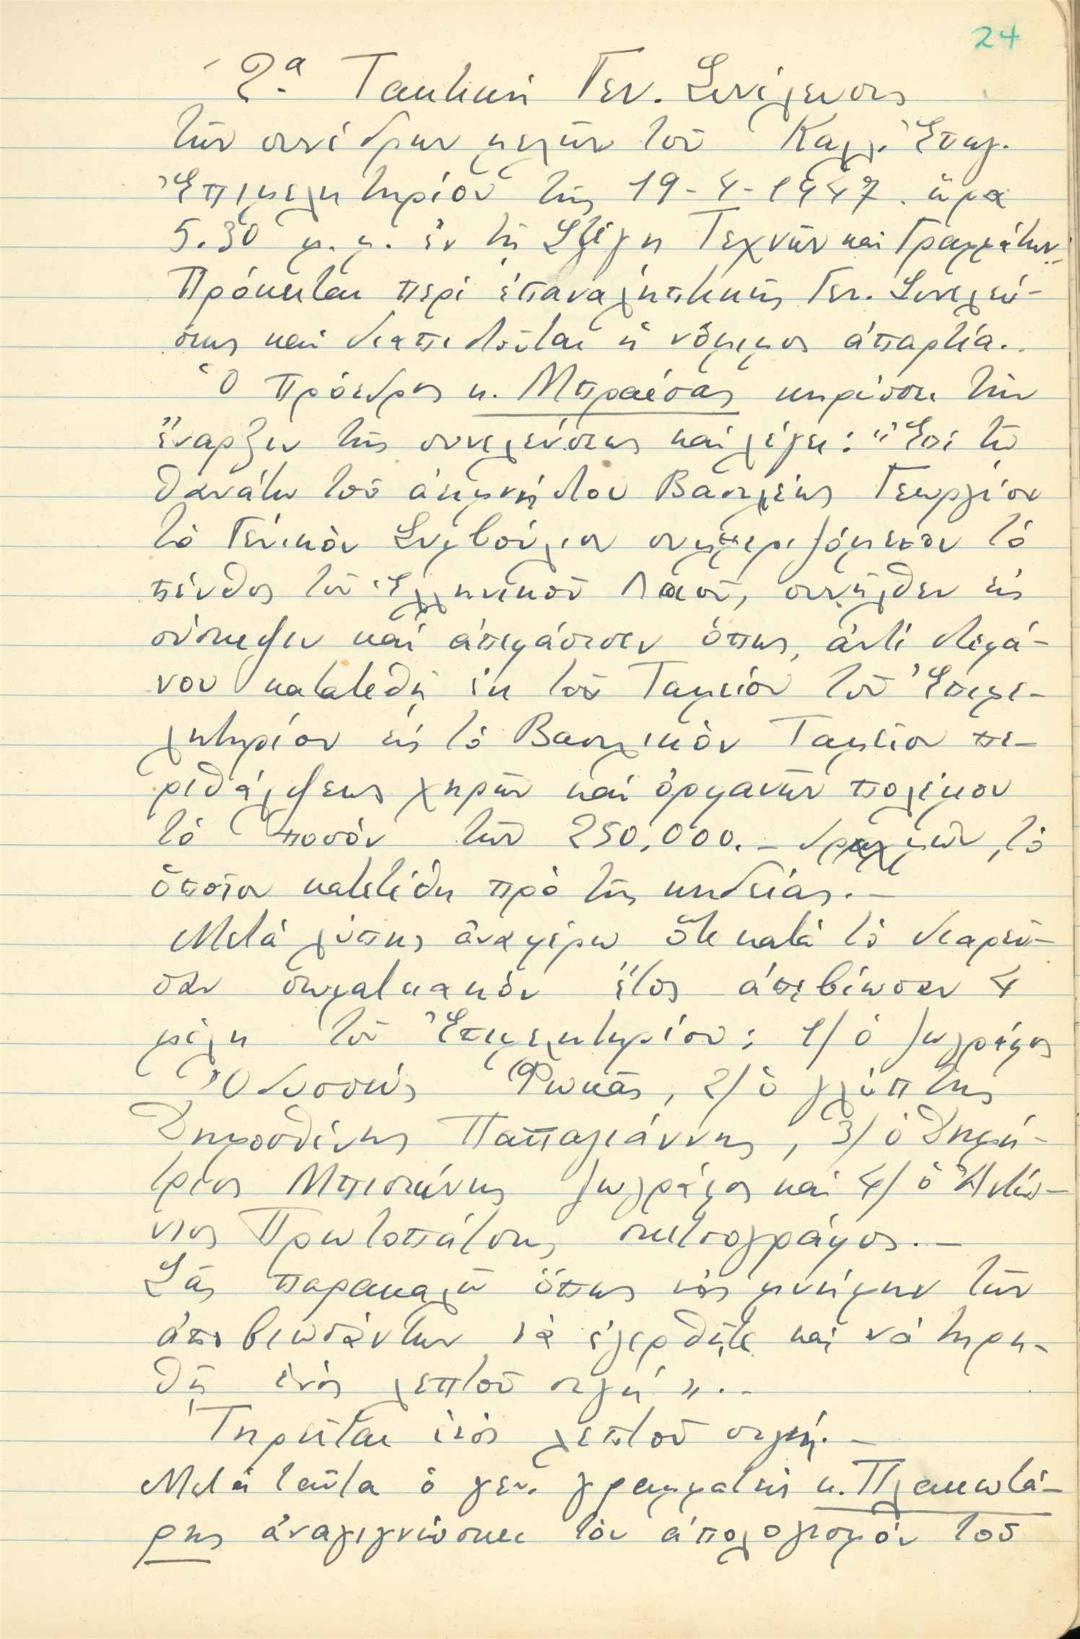 24
2α Τακτική Γεν. Συνέλευσις
τῶν συνέδρων μελῶν τοῦ Καλλ. Ἐπαγ.
Ἐπιμελητηρίου τῆς 19-4-1947. ὥρα
5.30 μ.μ. ἐν τῇ Στέγῃ Τεχνῶν καὶ Γραμμάτων.
Πρόκειται περὶ ἐπαναληπτικῆς Γεν. Συνελεύ-
σεως καὶ διαπιστοῦται ἡ νόμιμος ἀπαρτία..
Ὁ Πρόεδρος κ. Μπραέσας κηρύσσει τὴν
ἔναρξιν τῆς συνελεύσεως καὶ λέγει: "Ἐπὶ τῷ
θανάτῳ τοῦ ἀειμνήστου Βασιλέως Γεωργίου
τὸ Γενικὸν Συμβούλιον συμμεριζόμενον τὸ
πένθος τοῦ Ἑλληνικοῦ Λαοῦ, συνῆλθεν εἰς
σύσκεψιν καὶ ἀπεφάσισεν ὅπως, ἀντὶ στεφά-
νου κατατεθῇ ἐκ τοῦ Ταμείου τοῦ Ἐπιμε-
λητηρίου εἰς τὸ Βασιλικὸν Ταμεῖον πε-
ριθάλψεως χηρῶν καὶ ὀρφανῶν πολέμου
τὸ ποσὸν τῶν 250.000.- δραχμῶν, τὸ
ὁποῖον κατετέθη πρὸ τῆς κηδείας.-
Μετὰ λύπης ἀναφέρω ὅτι κατὰ τὸ διαρεῦ-
σαν σωματειακὸν ἔτος ἀπεβίωσαν 4
μέλη τοῦ Ἐπιμελητηρίου: 1/ ὁ ζωγράφος
Ὀδυσσεύς Φωκᾶς, 2/ ὁ γλύπτης
Δημοσθένης Παπαγιάννης, 3/ ὁ Δημή-
τριος Μπισκίνης ζωγράφος καὶ 4/ ὁ Ἀντώ-
νιος Πρωτοπάτσης σκιτσογράφος.-
Σᾶς παρακαλῶ ὅπως εἰς μνήμην τῶν
ἀποβιωσάντων νὰ ἐγερθῆτε καὶ νὰ τηρη-
θῇ ἑνὸς λεπτοῦ σιγή"..
Τηρεῖται ἑνὸς λεπτοῦ σιγή.-
Μετὰ ταῦτα ὁ γεν. γραμματεὺς κ. Πλακωτά-
ρης ἀναγιγνώσκει τὸν ἀπολογισμὸν τοῦ